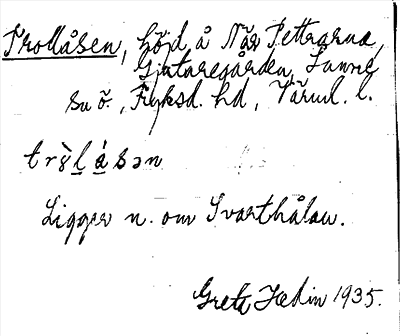 Trollåsen, höjd å När Pettrarna,
Gjutaregården, Sunne
sn ö., Fryksd. hd, Värml. l.
trɵ̀l á sən
Ligger n. om Svarthålan.
Greta Hedin 1935.